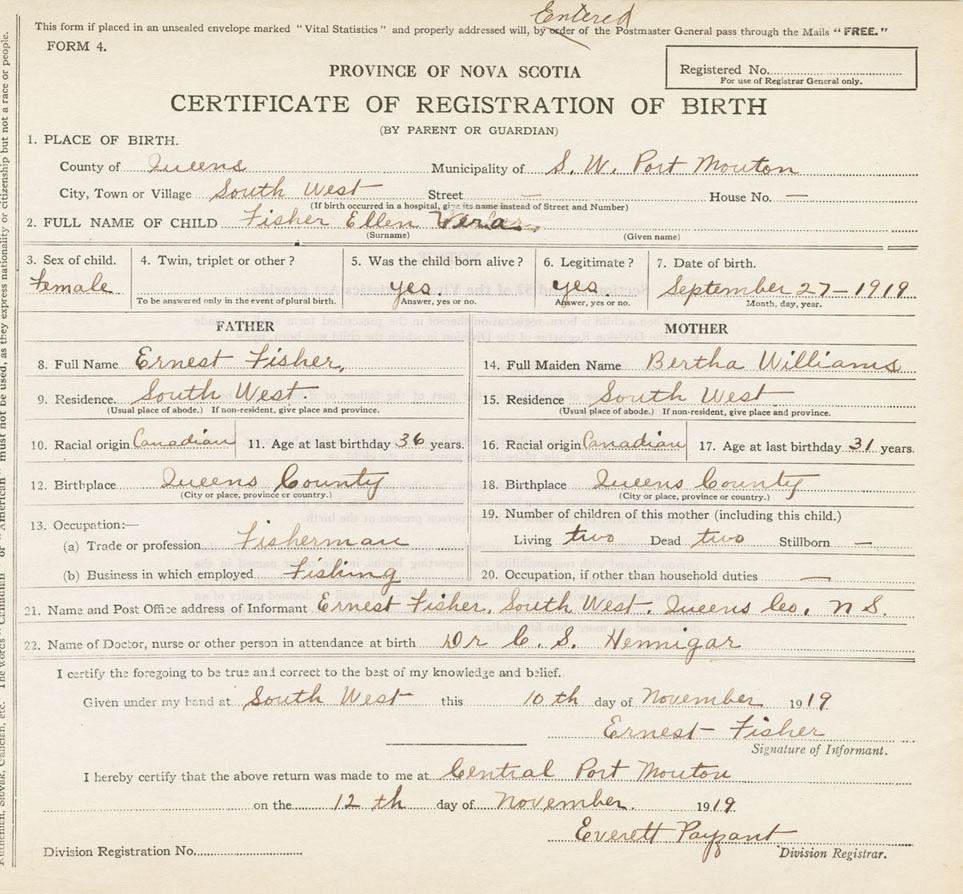 Entered
This form if placed in an unsealed envelope marked "Vital Statistics" and properly addressed will, by order of the Postmaster General pass through the Mails "FREE."
FORM 4.
Registered No.
For use of Registrar General only.
PROVINCE OF NOVA SCOTIA
CERTIFICATE OF REGISTRATION OF BIRTH
(BY PARENT OR GUARDIAN)
1. PLACE OF BIRTH.
County of Queens Municipality of S. W. Port Mouton
City, Town or Village South West Street — House No. —
(If birth occurred in a hospital, give its name instead of Street and Number)
2. FULL NAME OF CHILD Fisher Ellen Vera
(Surname) (Given name)
3. Sex of child. 4. Twin, triplet or other? 5. Was the child born alive? 6. Legitimate? 7. Date of birth.
female yes yes September 27-1919
To be answered only in the event of plural birth. Answer, yes or no. Answer, yes or no. Month, day, year.
FATHER MOTHER
8. Full Name Ernest Fisher, 14. Full Maiden Name Bertha Williams
9. Residence. South West. 15. Residence South West
(Usual place of abode.) If non-resident, give place and province. (Usual place of abode.) If non-resident, give place and province.
10. Racial origin Canadian 11. Age at last birthday 36 years. 16. Racial origin Canadian 17. Age at last birthday 31 years.
12. Birthplace Queens County 18. Birthplace Queens County
(City or place, province or country.) (City or place, province or country.)
13. Occupation:— 19. Number of children of this mother (including this child.)
(a) Trade or profession Fisherman Living two Dead two Stillborn —
(b) Business in which employed Fishing 20. Occupation, if other than household duties —
21. Name and Post Office address of Informant Ernest Fisher, South West, Queens Co. N S.
22. Name of Doctor, nurse or other person in attendance at birth Dr C. S. Hennigar
I certify the foregoing to be true and correct to the best of my knowledge and belief.
Given under my hand at South West this 10 th day of November 1919
Ernest Fisher
Signature of Informant.
I hereby certify that the above return was made to me at Central Port Mouton
on the 12 th day of November. 1919
Everett Payzant
Division Registration No. Division Registrar.
must not be used, as they express nationality or citizenship but not a race or people.
The words "Canadian" or "American"